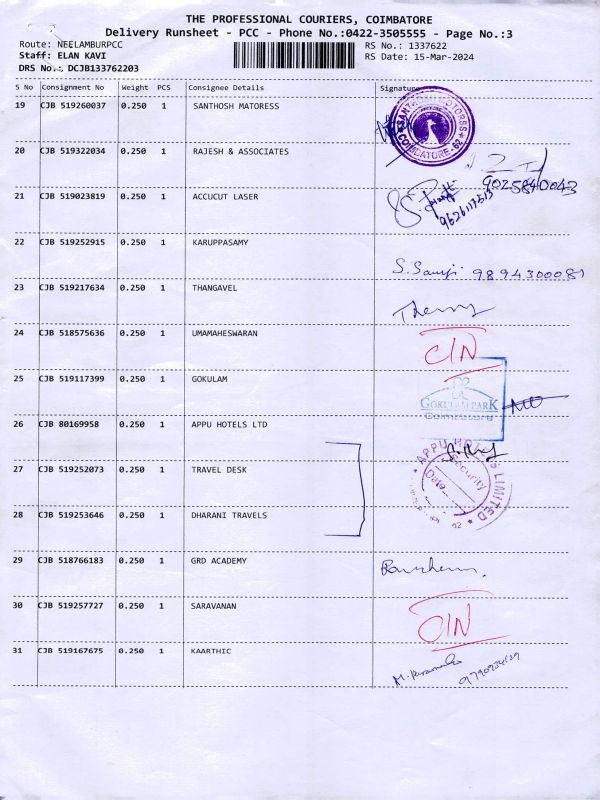 THE PROFESSIONAL COURIERS, COIMBATORE
Delivery Runsheet - PCC - Phone No.:0422-3505555 - Page No.:3
Route: NEELAMBURPCC RS No.: 1337622
Staff: ELAN KAVI RS Date: 15-Mar-2024
DRS No.: DCJB133762203
S No Consignment No Weight PCS Consignee Details Signature
19 CJB 519260037 0.250 1 SANTHOSH MATORESS
COIMBATORE-62
20 CJB 519322034 0.250 1 RAJESH & ASSOCIATES
9025840043
21 CJB 519023819 0.250 1 ACCUCUT LASER
9626117513
22 CJB 519252915 0.250 1 KARUPPASAMY
S. Samji 9894300081
23 CJB 519217634 0.250 1 THANGAVEL
24 CJB 518575636 0.250 1 UMAMAHESWARAN
CIN
25 CJB 519117399 0.250 1 GOKULAM
GOKULAM PARK
Coimbatore
26 CJB 80169958 0.250 1 APPU HOTELS LTD
APPU HOTELS LIMITED
Security
Date
27 CJB 519252073 0.250 1 TRAVEL DESK
28 CJB 519253646 0.250 1 DHARANI TRAVELS
29 CJB 518766183 0.250 1 GRD ACADEMY
30 CJB 519257727 0.250 1 SARAVANAN
OIN
31 CJB 519167675 0.250 1 KAARTHIC